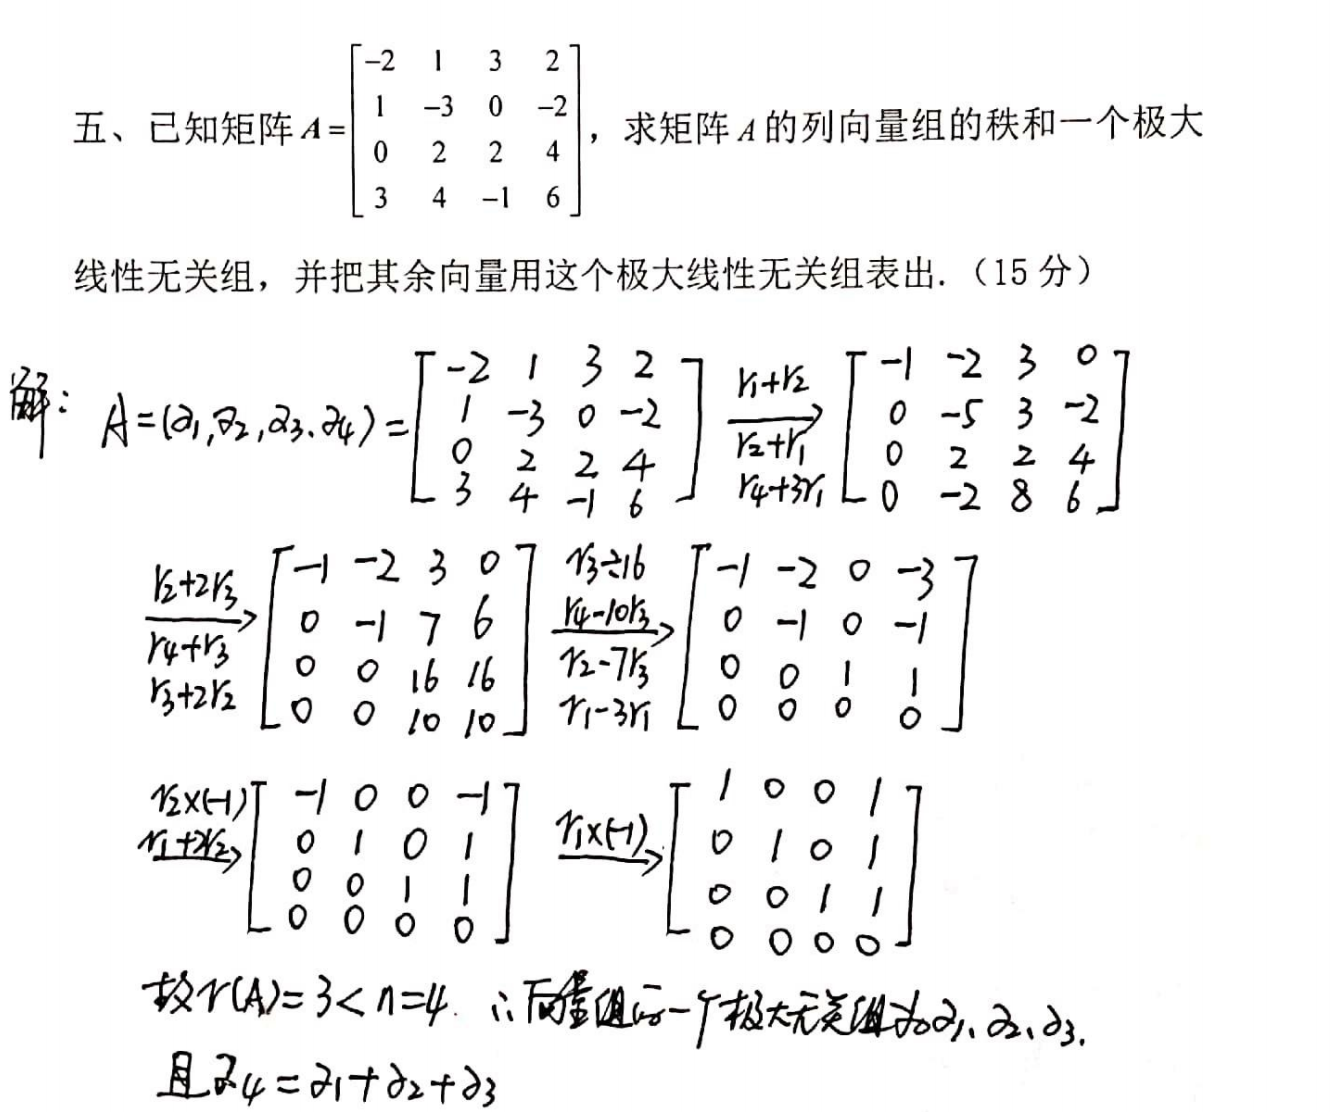 五、已知矩阵 A = [-2 1 3 2; 1 -3 0 -2; 0 2 2 4; 3 4 -1 6],求矩阵 A 的列向量组的秩和一个极大
线性无关组,并把其余向量用这个极大线性无关组表出.(15 分)
解: A=(α1,α2,α3,α4)= [-2 1 3 2; 1 -3 0 -2; 0 2 2 4; 3 4 -1 6] r1+r2 r2+r1 r4+3r1 → [-1 -2 3 0; 0 -5 3 -2; 0 2 2 4; 0 -2 8 6]
r2+2r3 r4+r3 r3+2r2 → [-1 -2 3 0; 0 -1 7 6; 0 0 16 16; 0 0 10 10] r3÷16 r4-10r3 r2-7r3 r1-3r1 → [-1 -2 0 -3; 0 -1 0 -1; 0 0 1 1; 0 0 0 0]
r2×(-1) r1+2r2 → [-1 0 0 -1; 0 1 0 1; 0 0 1 1; 0 0 0 0] r1×(-1) → [1 0 0 1; 0 1 0 1; 0 0 1 1; 0 0 0 0]
故r(A)=3<n=4. ∴向量组的一个极大无关组为α1、α2、α3.
且α4=α1+α2+α3